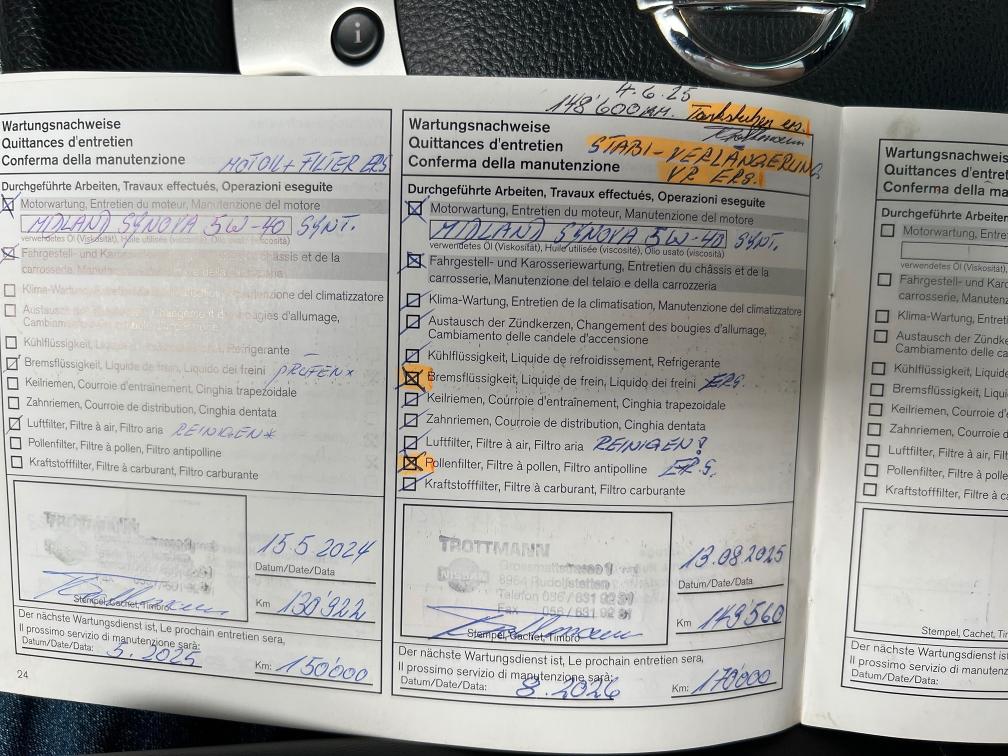 Wartungsnachweise
Quittances d'entretien
Conferma della manutenzione
MOTOR + FILTER ERS
Durchgeführte Arbeiten, Travaux effectués, Operazioni eseguite
Motorwartung, Entretien du moteur, Manutenzione del motore
MIDLAND SYNOVA 5W-40 SYNT.
verwendetes Öl (Viskosität), Huile utilisée (viscosité), Olio usato (viscosità)
Fahrgestell- und Karosseriewartung, Entretien du châssis et de la
carrosserie, Manutenzione del telaio e della carrozzeria
Klima-Wartung, Entretien de la climatisation, Manutenzione del climatizzatore
Austausch der Zündkerzen, Changement des bougies d'allumage,
Cambiamento delle candele d'accensione
Kühlflüssigkeit, Liquide de refroidissement, Refrigerante
Bremsflüssigkeit, Liquide de frein, Liquido dei freini PRÜFEN
Keilriemen, Courroie d'entraînement, Cinghia trapezoidale
Zahnriemen, Courroie de distribution, Cinghia dentata
Luftfilter, Filtre à air, Filtro aria REINIGEN
Pollenfilter, Filtre à pollen, Filtro antipolline
Kraftstofffilter, Filtre à carburant, Filtro carburante
Stempel, Cachet, Timbro
15.5.2024
Datum/Date/Data
Km 130'922
Der nächste Wartungsdienst ist, Le prochain entretien sera,
Il prossimo servizio di manutenzione sarà:
Datum/Date/Data: 5.2025
Km: 150'000
24
4.6.25
148'600 KM.
Wartungsnachweise
Quittances d'entretien
Conferma della manutenzione
STABI-VERLÄNGERUNG
VR ERS.
Durchgeführte Arbeiten, Travaux effectués, Operazioni eseguite
Motorwartung, Entretien du moteur, Manutenzione del motore
MIDLAND SYNOVA 5W-40 SYNT.
verwendetes Öl (Viskosität), Huile utilisée (viscosité), Olio usato (viscosità)
Fahrgestell- und Karosseriewartung, Entretien du châssis et de la
carrosserie, Manutenzione del telaio e della carrozzeria
Klima-Wartung, Entretien de la climatisation, Manutenzione del climatizzatore
Austausch der Zündkerzen, Changement des bougies d'allumage,
Cambiamento delle candele d'accensione
Kühlflüssigkeit, Liquide de refroidissement, Refrigerante
Bremsflüssigkeit, Liquide de frein, Liquido dei freini ERS.
Keilriemen, Courroie d'entraînement, Cinghia trapezoidale
Zahnriemen, Courroie de distribution, Cinghia dentata
Luftfilter, Filtre à air, Filtro aria REINIGEN!
Pollenfilter, Filtre à pollen, Filtro antipolline ERS.
Kraftstofffilter, Filtre à carburant, Filtro carburante
TROTTMANN
NISSAN
8964 Rudolfstetten
Telefon 056 / 631
Fax 056 / 631
Stempel, Cachet, Timbro
13.08.2025
Datum/Date/Data
Km 149'560
Der nächste Wartungsdienst ist, Le prochain entretien sera,
Il prossimo servizio di manutenzione sarà:
Datum/Date/Data: 8.2026
Km: 170'000
Wartungsnachweis
Quittances d'entretie
Conferma della ma
Durchgeführte Arbeiten
Motorwartung, Entre
verwendetes Öl (Viskosität)
Fahrgestell- und Ka
carrosserie, Manute
Klima-Wartung, Entreti
Austausch der Zünd
Cambiamento delle c
Kühlflüssigkeit, Liquide
Bremsflüssigkeit, Liqui
Keilriemen, Courroie d'
Zahnriemen, Courroie
Luftfilter, Filtre à air, F
Pollenfilter, Filtre à po
Kraftstofffilter, Filtre à c
Stempel, Cachet, Ti
Der nächste Wartungsdienst
Il prossimo servizio di manute
Datum/Date/Data: